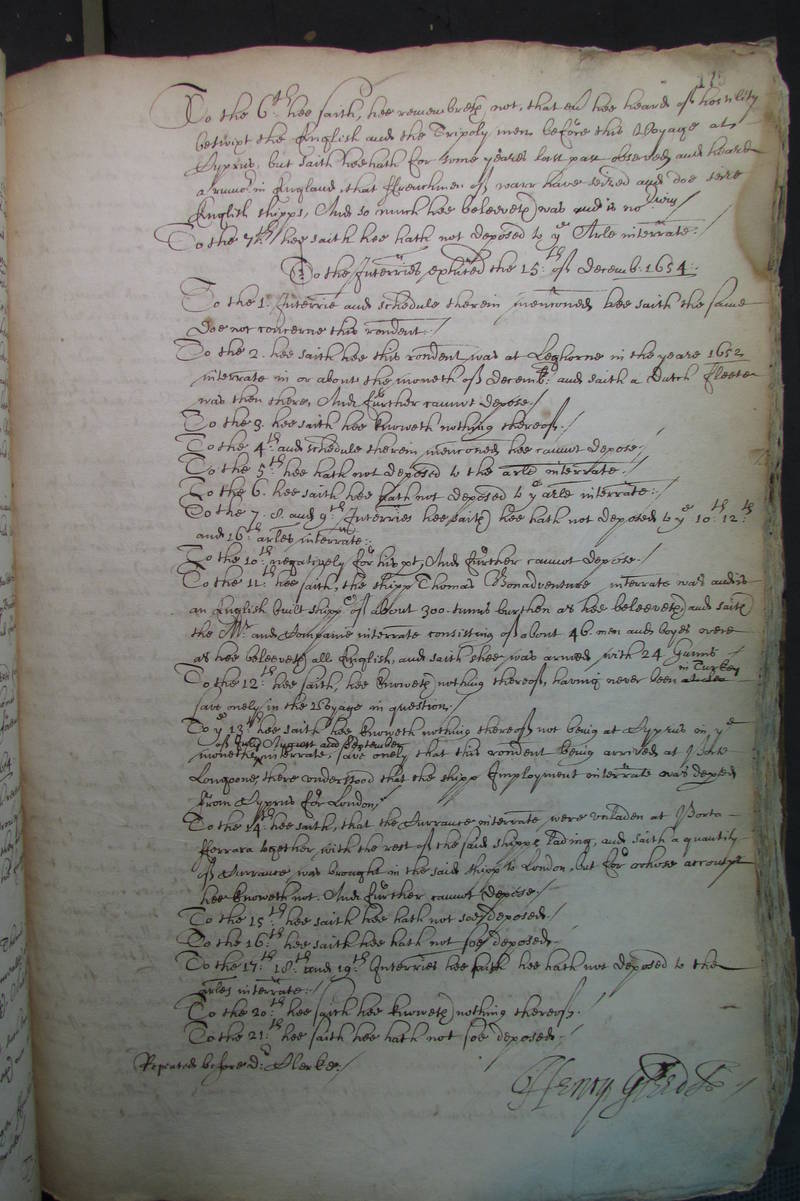 To the 6th: hee saith, hee remembreth not, that ever hee heard of hostility
betwixt the English and the Tripoly men before this Voyage at
Cyprus, but saith hee hath for some yeares last past observed and heard
a rumor in England, that ffrenchmen of warr have seized and doe seize
English shipps, And so much hee beleeveth was and is no
To the 7th: hee saith hee hath not deposed to ye Arle interrate./
To the Interries exhited the 15:th of Decemb: 1654:
To the 1. Interrie and schedule therein mentioned hee saith the same
doe not concerne this rendent./
To the 2. hee saith hee this rendent was at Leghorne in the yeare 1652
interrate in or about the moneth of decemb:r and saith a Dutch ffleete
was then there, And further cannot depose./
To the 3. hee saith hee knoweth nothing thereof./
To the 4th: and schedule therein menconed hee cannot depose./
To the 5th: hee hath not deposed to the arle interrate./
To the 6. hee saith hee hath not deposed to ye arle interrate:/
To the 7. 8. and 9th: Interries hee saith hee hath not deposed to ye 10:th 12:th
and 16th: arles interrate:
To the 10:th negatively for his pt, And further cannot depose./
To the 11:th hee saith, the shipp Thomas Bonadventure interrate was and is
an English built shipp of about 300. tunns burthen as hee beleeveth and saith
the Mr. and Companie interrate consisting of about 46. men and boyes were
as hee beleeveth all English, and saith shee was armed with 24 Gunns
To the 12:th hee saith, hee knoweth nothing thereof, having never been in Turkey
save onely in the Voyage in question./
To ye 13:th hee saith hee knoweth nothing thereof not being at Cyprus in ye
of July August and September
moneths interrate, save onely that this rendent being arrived at Porto
Longone, there understood that the shipp Imployment interrate was depted
from Cyprus for London,
To the 14:th hee saith, that the Currance interrate were unladen at Porto
fferrara together with the rest of the said shipps lading, and saith a quantity
of Currance was brought in the said shipp to London, but for whose accompt
hee knoweth not. And further cannot depose./
To the 15:th hee saith hee hath not soe deposed./
To the 16:th hee saith hee hath not soe deposed.
To the 17:th 18:th and 19:th Interries hee saith hee hath not deposed to the
arles interrate:/
To the 20:th hee saith hee knoweth nothing thereof./
To the 21:th hee saith hee hath not soe deposed./
Repeated before dr: Clerke./
Henry